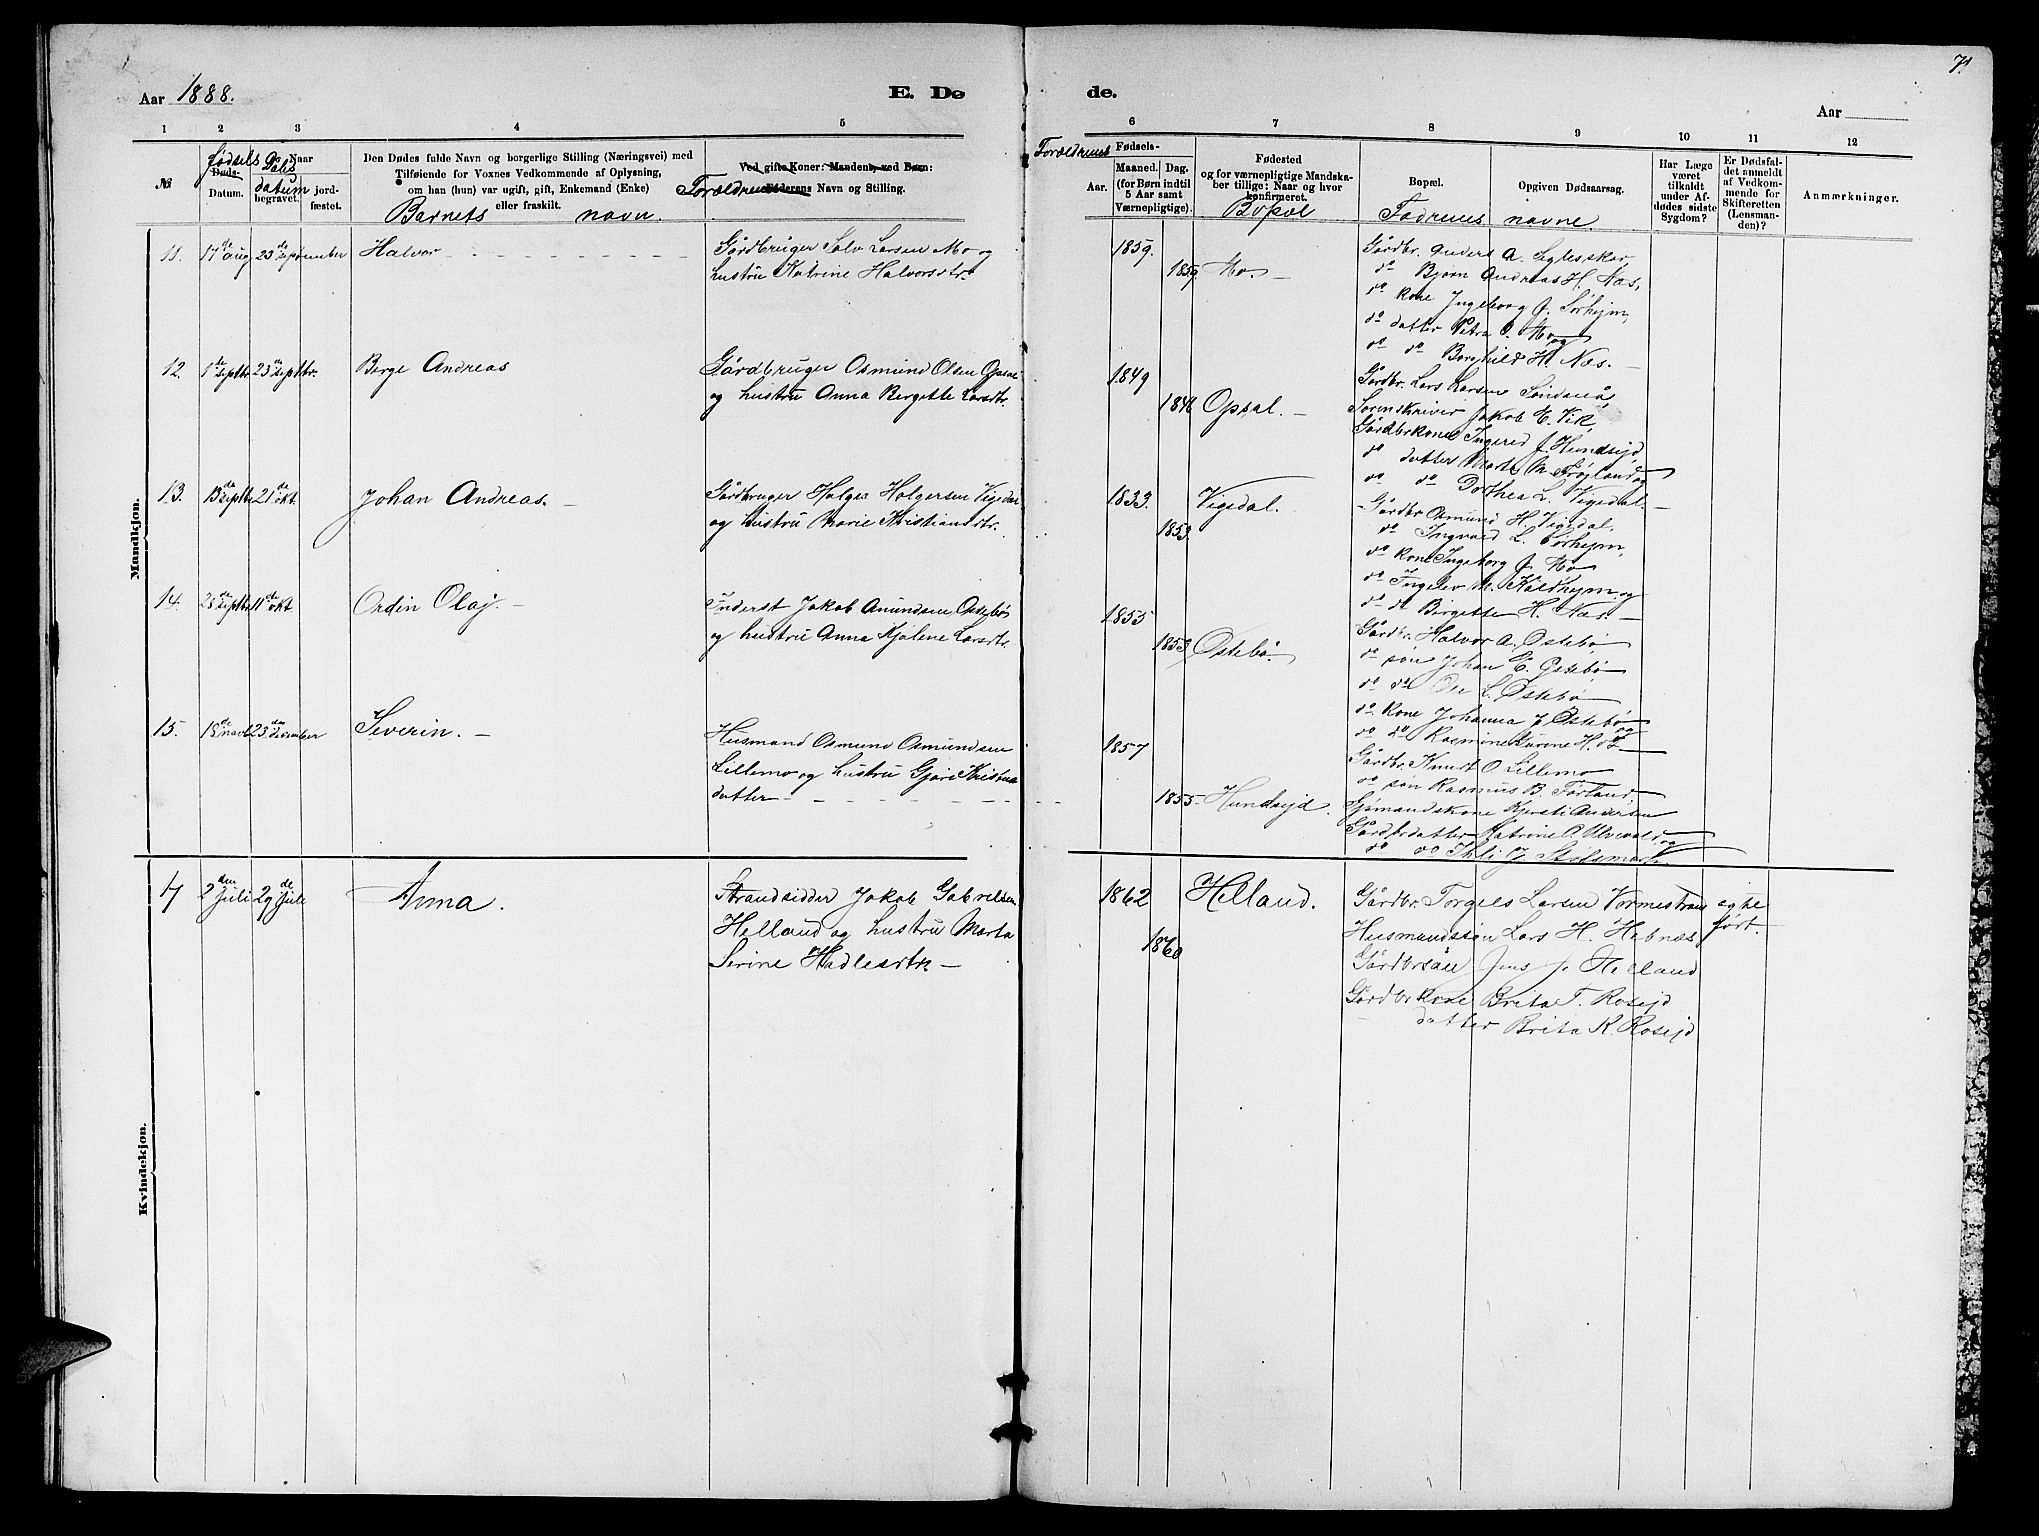 71
Aar 1888.
E. Dø
de.
Aar
1 2 3 4 5
6 7 8 9 10 11 12
№
Fødsels
Døds-
Datum.
Dåbs
Naar
datum
begravet.
jord-
fæstet.
Den Dødes fulde Navn og borgerlige Stilling (Næringsvei) med
Tilføiende for Voxnes Vedkommende af Oplysning,
om han (hun) var ugift, gift, Enkemand (Enke)
eller fraskilt.
Barnets navn.
Ved gifte Koner: Mandens, ved Børn:
Forældrenes Faderens Navn og Stilling.
Forældrenes Fødsels-
Aar.
Maaned.
Dag.
(for Børn indtil
5 Aar samt
Værnepligtige).
Fødested
og for værnepligtige Mandska-
ber tillige: Naar og hvor
konfirmeret.
Bopæl
Bopæl.
Opgiven Dødsaarsag.
Fadrenes navne
Har Læge
været
tilkaldt
under Af-
dødes sidste
Sygdom?
Er Dødsfal-
det anmeldt
af Vedkom-
mende for
Skifteretten
(Lensman-
den)?
Anmærkninger.
Mandkjøn.
11. 17de aug 23de september Halvor
Gårdbruger Salv Larsen Mo og
hustru Katrine Halvorsdtr.
1859.
1859 Mo.
Gårdbr. Anders A. Eglesskor,
do Bjørn Andreas H. Næs,
do kone Ingeborg J. Sørhejm,
do datter Petra O. Mo, og
do do Borghild H. Næs.
12. 1de septbr. 23de septbr. Berge Andreas
Gårdbruger Osmund Olsen Opsal
og hustru Anna Bergette Larsdtr.
1849
1846 Opsal.
Gårdbr. Lars Larsen Søndenå,
Sorenskriver Jakob E. Vik,
Gårdbrkone Ingered J. Hundsejd,
do datter Marta M. Frøjland og
do do Dorthea L. Vigedal.
13. 13de septbr 21de okt. Johan Andreas.
Gårdbruger Holger Holgersen Vigedal
og hustru Marie Kristiansdtr.
1833. Vigedal.
1853
Gårdbr. Osmund H. Vigedal,
do Ingvald L. Sørhejm,
do kone Ingeborg J. Mo
do Ingelev M. Kåldhejm og
do do Birgette H. Næs.
14. 28de septbr 11de okt. Ordin Olaj.
Inderst Jakob Amundsen Østebø
og hustru Anna Kjølene Larsdtr.
1855
1853 Østebø.
Gårdbr. Halvor A. Østebø
do søn Johan E. Østebø
do do Ole L. Østebø
do kone Johanna J. Østebø og
do do Rasmine Karine H. do
15. 18de novbr 23de december Severin.
Husmand Osmund Osmundsen
Lillemo og hustru Gjøri Kristens
datter
1857
1855 Hundsejd.
Gårdbr. Knudt O. Lillemo
do søn Rasmus B. Førland,
Sjømandskone Kjersti Andersen
Gårdbrdatter Katrine A. Ulvevold, og
do do Thli J. Stølsmark
Kvindekjøn.
17 2den juli 29de juli Anna.
Strandsidder Jakob Gabrielsen
Helland og hustru Marta
Serine Hadlesdtr.
1862 Helland.
1860
Gårdbr. Torgils Larsen Vormestrand ej be
Husmandssøn Lars H. Hebnæs ført.
Gårdbrsøn Jens J. Helland
Gårdbrkone Brita T. Rosejd
datter Brita R. Rosejd